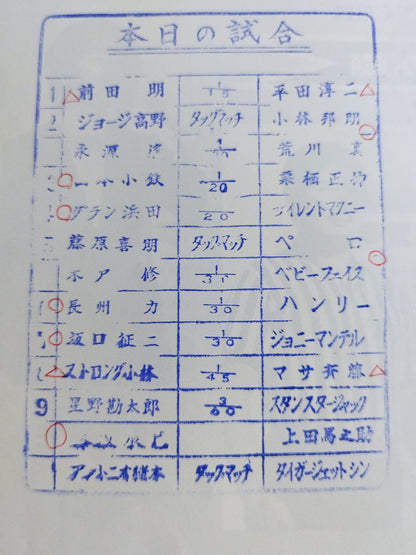 本日の試合
1 前田 明 1/15 平田淳二
2 ジョージ高野 タッグマッチ 小林邦明
永源 遙 荒川 真
山本小鉄 1/20 栗栖正伸
グラン浜田 20 サイレントマクニー
藤原喜明 タッグマッチ
木戸 修 ベビーフェイス
長州 力 1/30 ハンリー
坂口征二 1/30 ジョニーマンテル
ストロング小林 1/45 マサ斉藤
9 星野勘太郎 3/60 スタンスタージャック
上田馬之助
アントニオ猪木 タッグマッチ タイガージェットシン